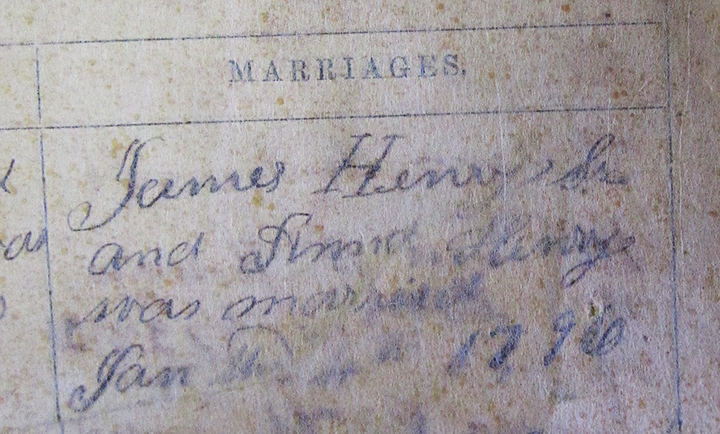 MARRIAGES.
James Henry Sr
and Anna Henry
was married
Jan 1796